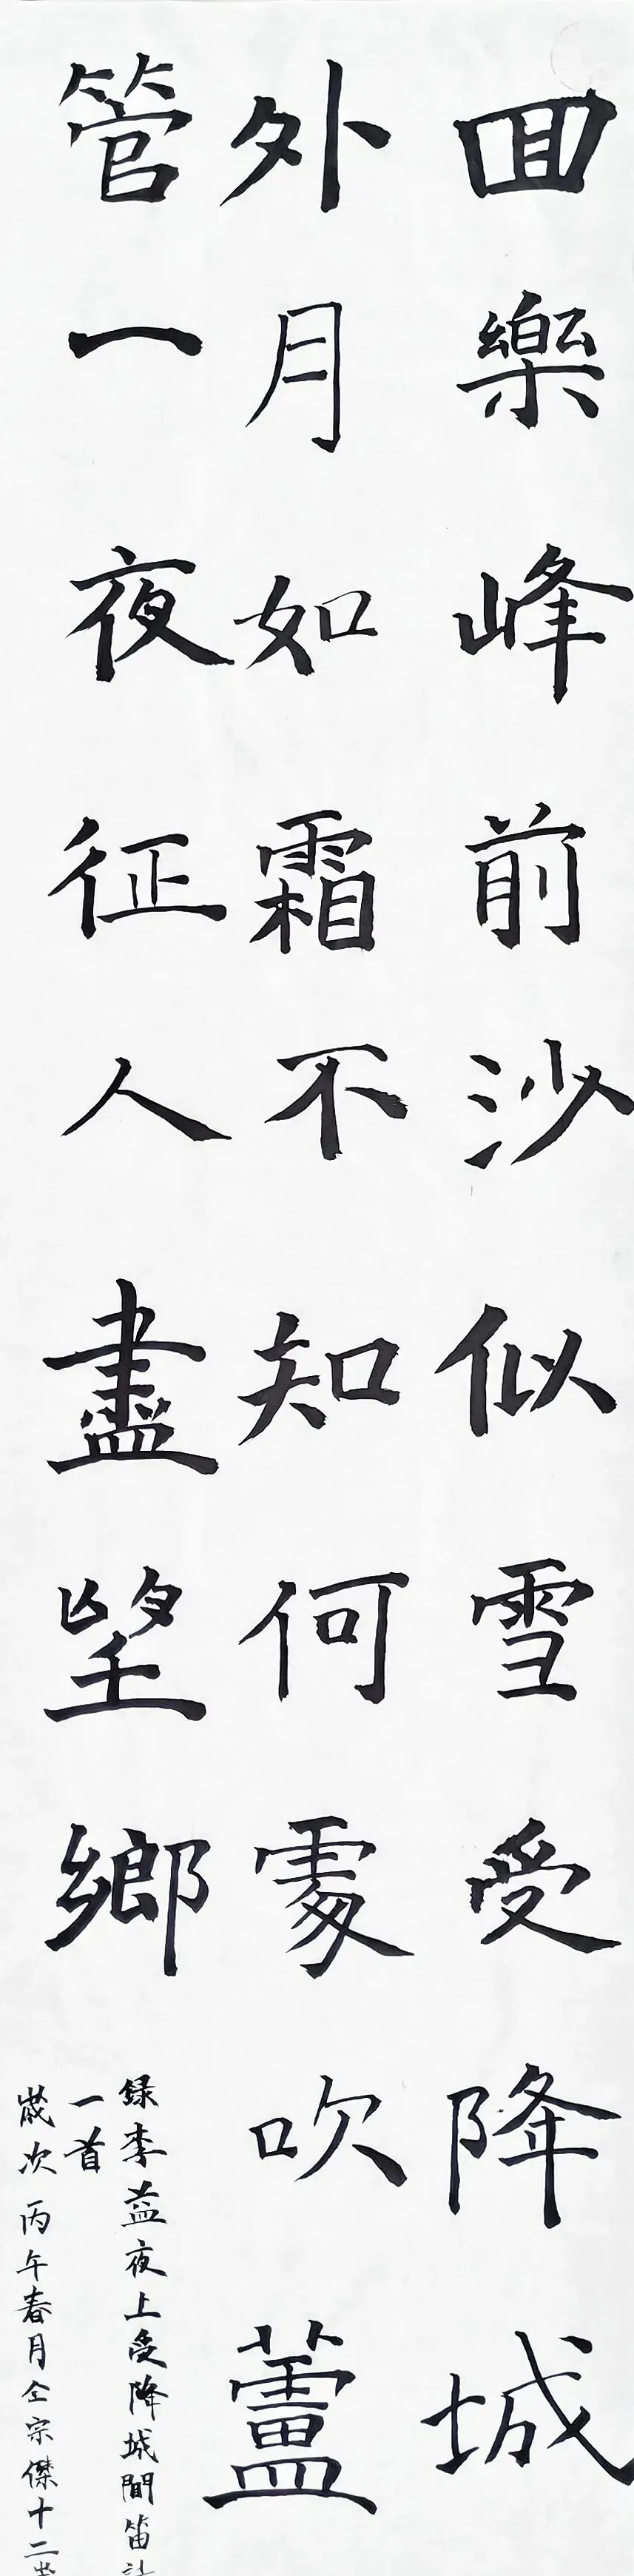 囬樂峰前沙似雪受降城
外月如霜不知何處吹蘆
管一夜征人盡望鄉
録李益夜上受降城聞笛詩
一首
歲次丙午春月仝宗傑十二歲